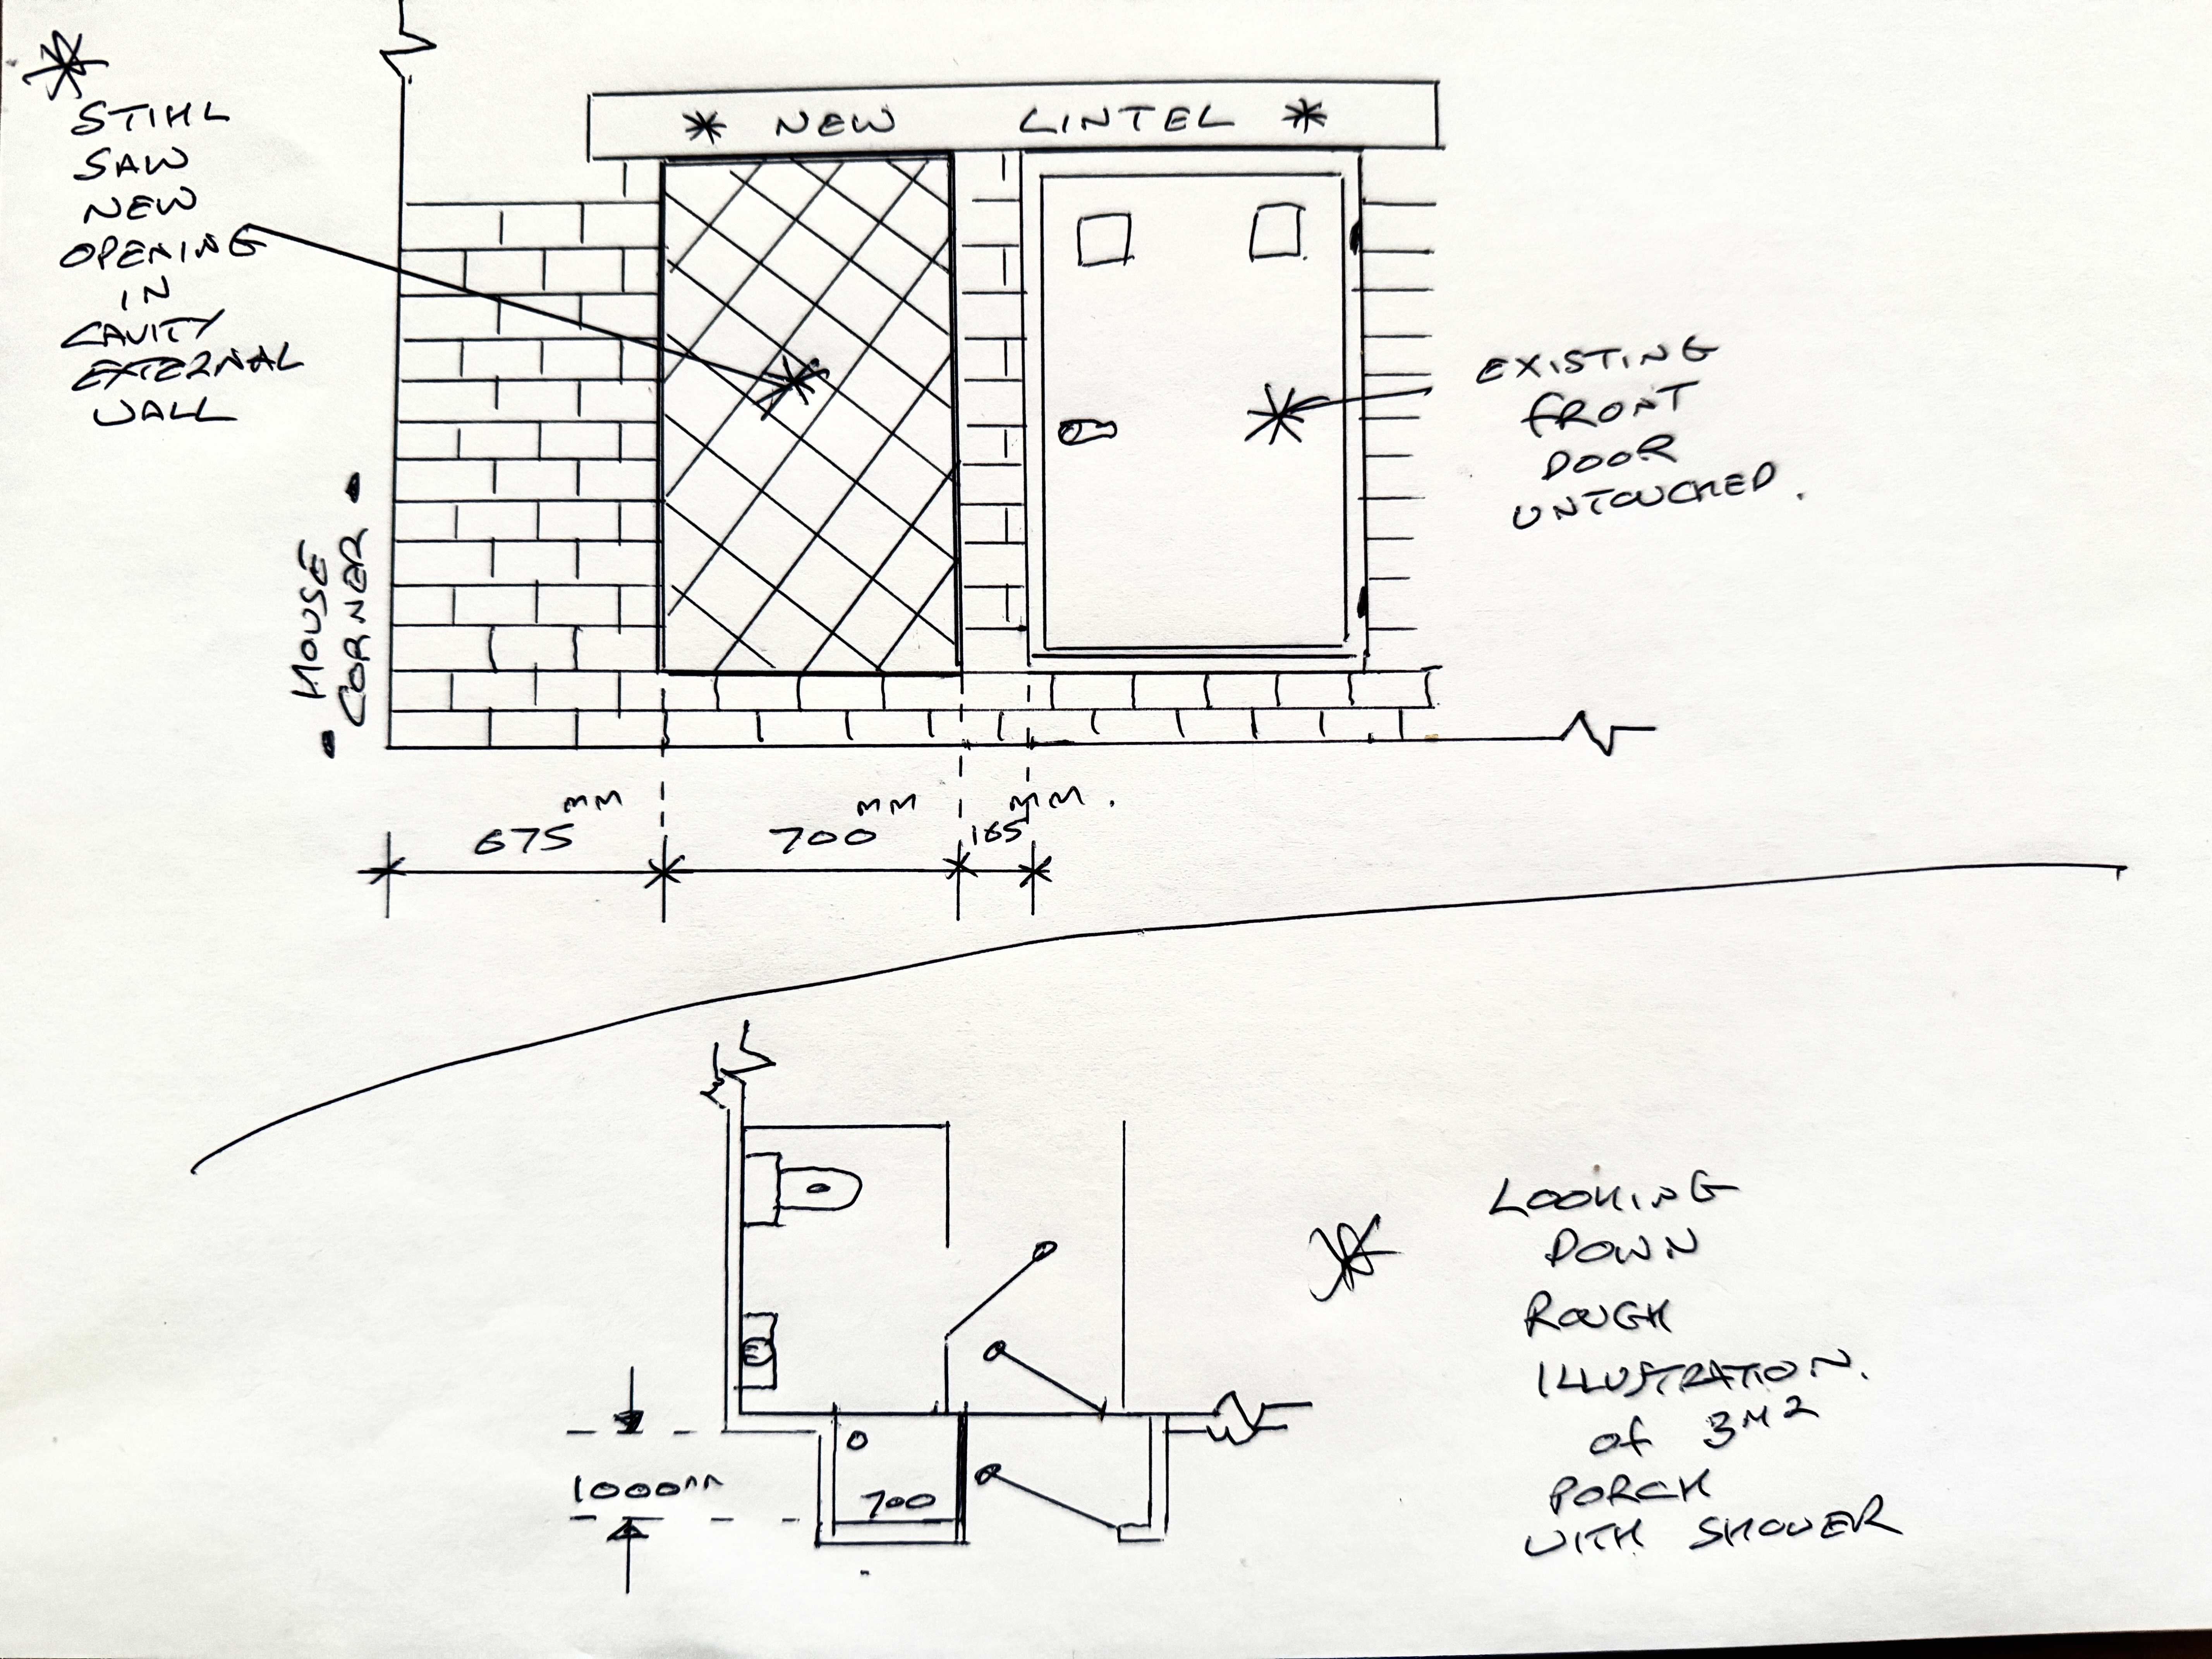 * STIHL
SAW
NEW
OPENING
IN
CAVITY
EXTERNAL
WALL
* NEW LINTEL *
EXISTING
FRONT
DOOR
UNTOUCHED.
HOUSE
CORNER
675 mm
700 mm
165 mm.
LOOKING
DOWN
ROUGH
ILLUSTRATION.
of 3M2
PORCH
WITH SHOWER
1000mm
700